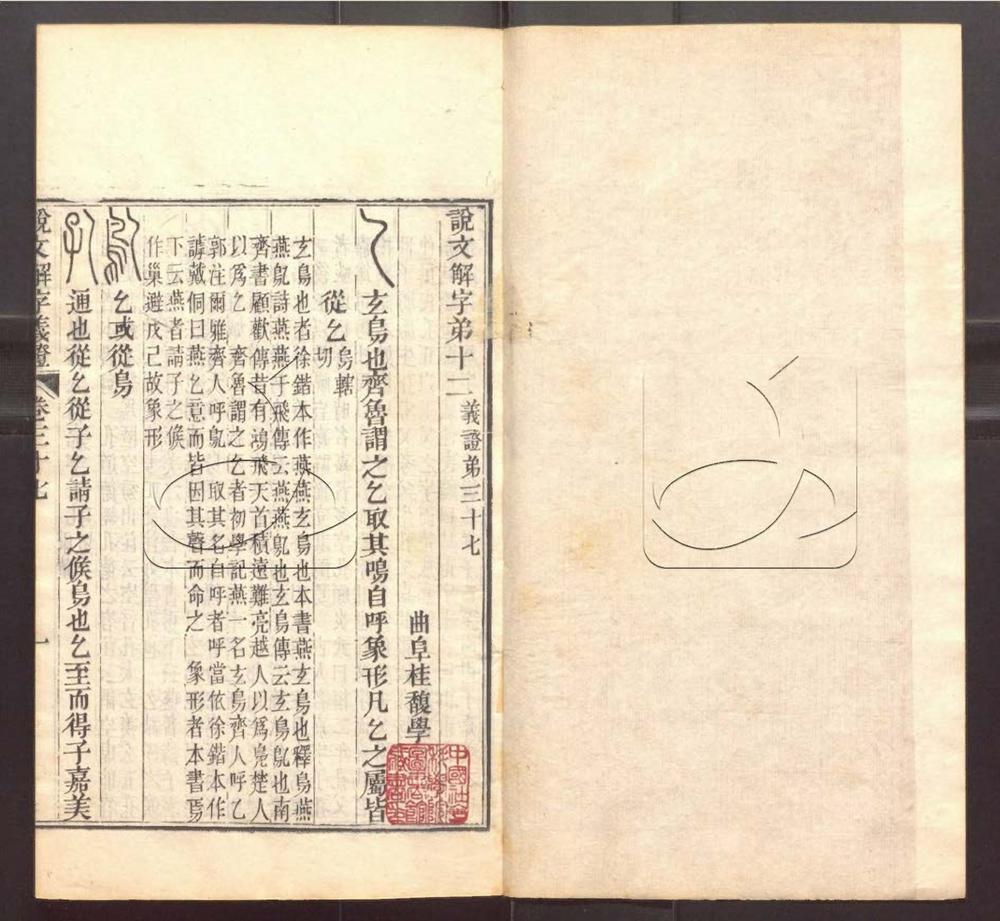 說文解字弟十二 義證弟三十七
曲阜桂馥學
乞 玄鳥也齊魯謂之乞取其鳴自呼象形凡乞之屬皆
從乞 烏轄切
玄鳥也者徐鍇本作燕燕玄鳥也本書燕玄鳥也釋鳥燕
燕鳦詩燕燕于飛傳云燕燕鳦也玄鳥傳云玄鳥鳦也南
齊書顧歡傳昔有鴻飛天首積遠難亮越人以爲鳧楚人
以爲乙 齊魯謂之乞者初學記燕一名玄鳥齊人呼乙
郭注爾雅齊人呼鳦 取其名自呼者呼當依徐鍇本作
謼戴侗曰燕乞意而皆因其聲而命之 象形者本書焉
下云燕者請子之候
作巢避戊己故象形
鳦 乞或從鳥
孔 通也從乞從子乞請子之候鳥也乞至而得子嘉美
說文解字義證 卷三十七 一